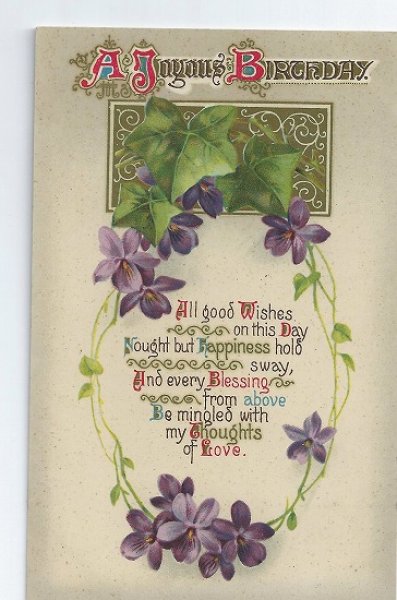 A Joyous Birthday.
All good Wishes
on this Day
Nought but Happiness hold
sway,
And every Blessing
from above
Be mingled with
my Thoughts
of Love.